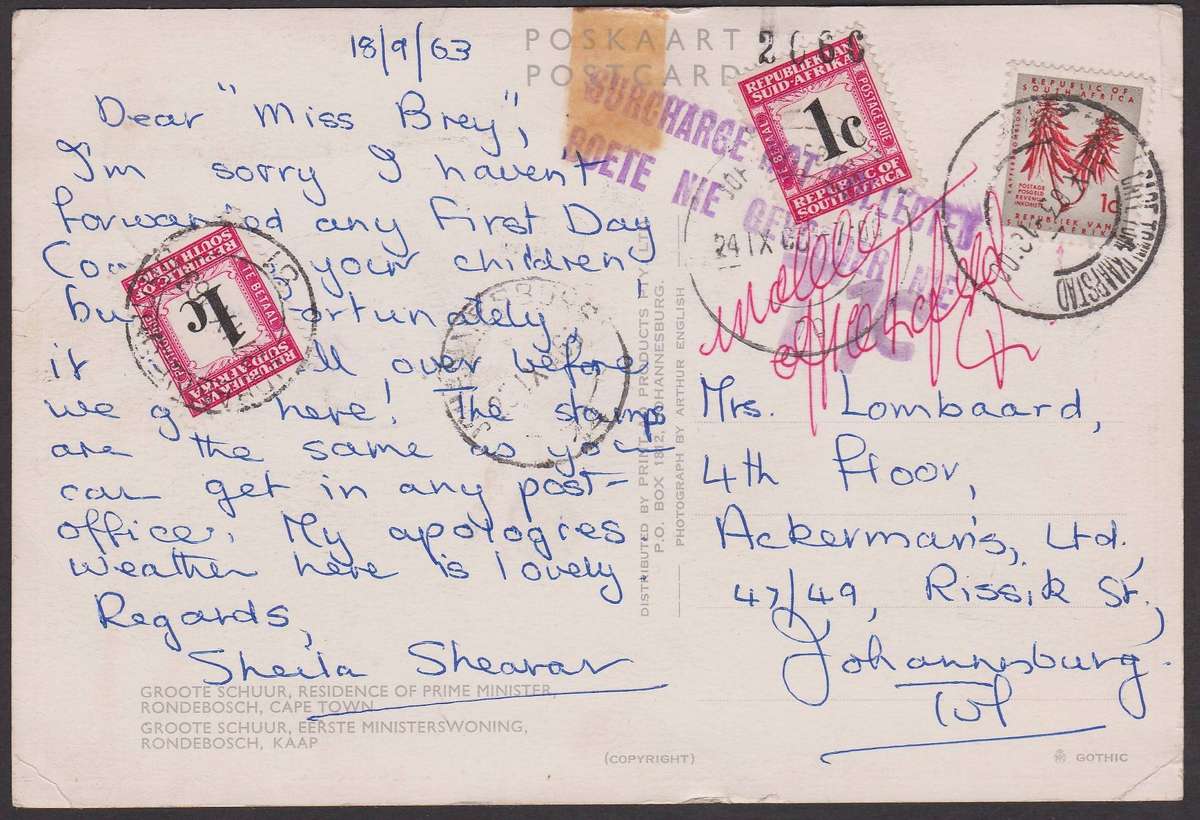 18/9/63
POSKAART
POSTCARD
Dear "Miss Brey",
I'm sorry I havent
forwarded any First Day
your children
it all over before
we g here! The stamps
are the same as you
can get in any post-
office. My apologies
Weather here is lovely
Regards,
Sheila Shearar
GROOTE SCHUUR, RESIDENCE OF PRIME MINISTER,
RONDEBOSCH, CAPE TOWN
GROOTE SCHUUR, EERSTE MINISTERSWONING,
RONDEBOSCH, KAAP
REPUBLIC OF
SOUTH AFRICA
TE BETAAL
1c
REPUBLIEK VAN
SUID-AFRIKA
DISTRIBUTED BY PRINT PRODUCTS
P.O. BOX 1812, JOHANNESBURG.
PHOTOGRAPH BY ARTHUR ENGLISH
(COPYRIGHT)
GOTHIC
SURCHARGE NOT COLLECTED
BOETE NIE
2C6C
REPUBLIEK VAN
SUID-AFRIKA
POSTAGE DUE
TE BETAAL
1c
REPUBLIC OF
SOUTH AFRICA
24 IX
REPUBLIC OF
SOUTH AFRICA
POSTAGE
POSGELD
REVENUE
INKOMSTE
1c
REPUBLIEK VAN
KAAPSTAD
Mrs. Lombaard,
4th Floor,
Ackerman's, Ltd.,
47/49, Rissik St.,
Johannesburg.
Tvl